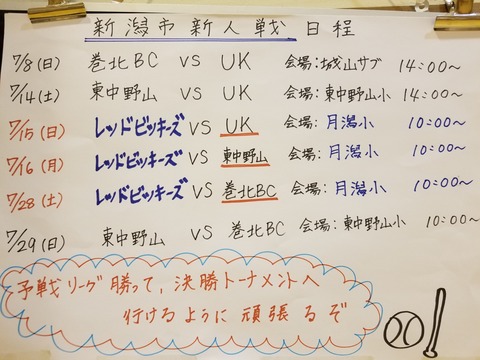 新潟市新人戦日程
7/8(日) 巻北BC VS UK 会場:城山サブ 14:00〜
7/14(土) 東中野山 VS UK 会場:東中野山小 14:00〜
7/15(日) レッドビッキーズ VS UK 会場:月潟小 10:00〜
7/16(月) レッドビッキーズ VS 東中野山 会場:月潟小 10:00〜
7/28(土) レッドビッキーズ VS 巻北BC 会場:月潟小 10:00〜
7/29(日) 東中野山 VS 巻北BC 会場:東中野山小 10:00〜
予戦リーグ勝って、決勝トーナメントへ
行けるように頑張るぞ